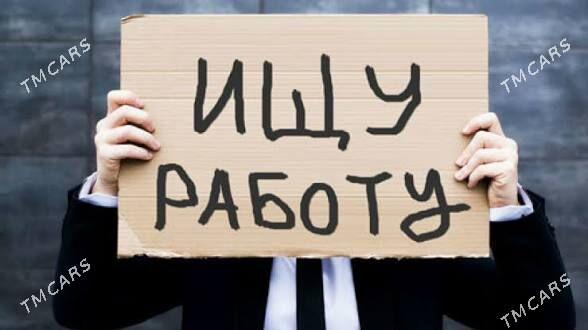 TMCARS
TMCARS
ИЩУ
РАБОТУ
TMCARS
TMCARS